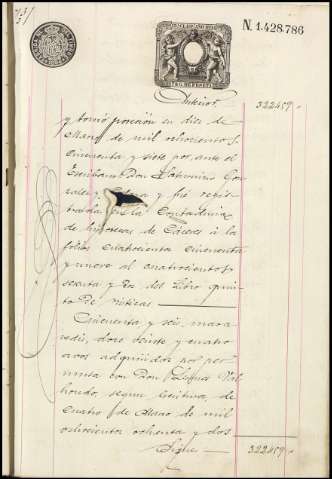 N. 1.428.786
Anterior 322459
y tomó posesión en diez de
Marzo de mil ochocientos
cincuenta y siete por ante el
Escribano Don
y fué regis-
trada en la Contaduría
de hipotecas de Cáceres á la
folios cuatrocientos cincuenta
y nueve al cuatrocientos
sesenta y dos del Libro quin-
to de rústicas
Cincuenta y seis mara-
vedis, doce veinte y cuatro
avos adquiridos por per-
muta con Don
segun escritura de
cuatro de Marzo de mil
ochocientos ochenta y dos
Sigue 322459